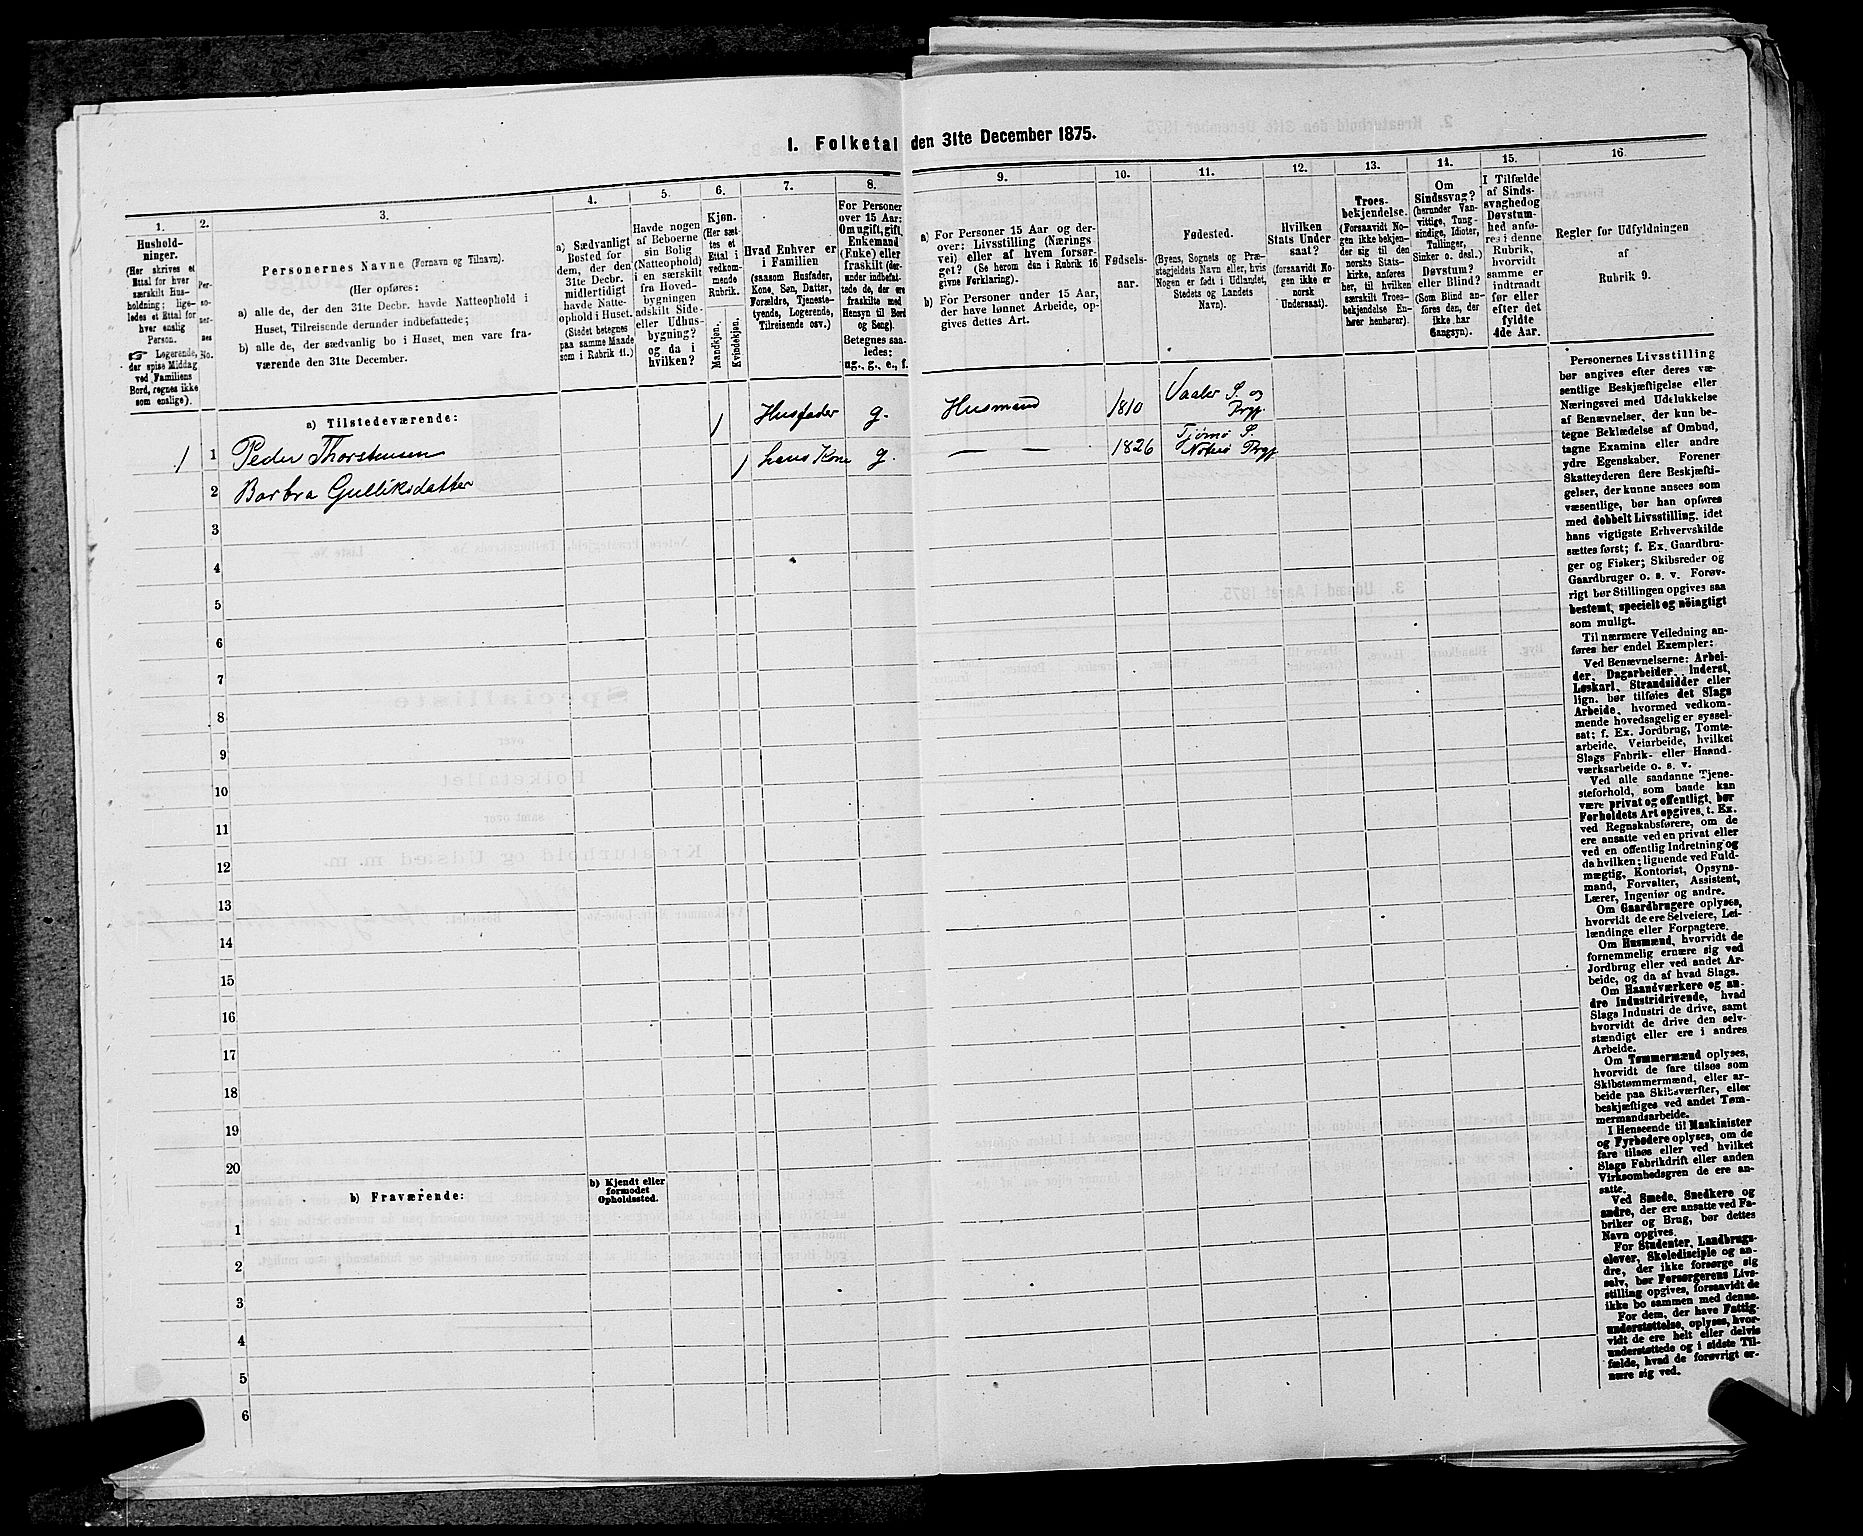 1. Folketal den 31te December 1875.
1.
2.
3.
4.
5.
6.
7.
8.
9.
10.
11.
12.
13.
14.
15.
16.
Hushold-
ninger.
(Her skrives et
Ettal for hver
særskilt Hus-
holdning; lige-
ledes et Ettal for
hver enslig
Person.
☞ Logerende,
der spise Middag
ved Familiens
Bord, regnes ikke
som enslige).
Per-
so-
ner-
nes
No.
Personernes Navne (Fornavn og Tilnavn).
(Her opføres:
a) alle de, der den 31te Decbr. havde Natteophold i
Huset, Tilreisende derunder indbefattede;
b) alle de, der sædvanlig bo i Huset, men vare fra-
værende den 31te December.
a) Sædvanligt
Bosted for
dem, der den
31te Decbr.
midlertidigt
havde Natte-
ophold i Huset.
(Stedet betegnes
paa samme Maade
som i Rubrik 11.)
Havde nogen
af Beboerne
sin Bolig
(Natteophold)
i en særskilt
fra Hoved-
bygningen
adskilt Side-
eller Udhus-
bygning?
og da i
hvilken?
Kjøn.
(Her sæt-
tes et
Ettal i
vedkom-
mende
Rubrik.
Mandkjøn.
Kvindekjøn.
Hvad Enhver er
i Familien
(saasom Husfader,
Kone, Søn, Datter,
Forældre, Tjeneste-
tyende, Logerende,
Tilreisende osv.)
For Personer
over 15 Aar:
Om ugift, gift,
Enkemand
(Enke) eller
fraskilt (der-
under indbefat-
tede de, der ere
fraskilte med
Hensyn til Bord
og Seng).
Betegnes saa-
ledes:
ug., g., e., f.
a) For Personer 15 Aar og der-
over: Livsstilling (Nærings-
vei) eller af hvem forsør-
get? (Se herom den i Rubrik 16
givne Forklaring).
b) For Personer under 15 Aar,
der have lønnet Arbeide, op-
gives dettes Art.
Fødsels-
aar.
Fødested.
(Byens, Sognets og Præ-
stegjeldets Navn eller, hvis
Nogen er født i Udlandet,
Stedets og Landets
Navn).
Hvilken
Stats Under
saat?
(forsaavidt No-
gen ikke er
norsk
Undersaat).
Troes-
bekjendelse.
(Forsaavidt No-
gen ikke bekjen-
der sig til den
norske Stats-
kirke, anføres
her, til hvilken
særskilt Troes-
bekjendelse En-
hver henhører).
Om
Sindssvag?
(herunder Van-
vittige, Tung-
sindige, Idioter,
Tullinger,
Sinker o. desl.)
Døvstum?
eller Blind?
(Som Blind an-
føres den, der
ikke har
Gangsyn).
I Tilfælde
af Sinds-
svaghed og
Døvstum-
hed anfø-
res i denne
Rubrik,
hvorvidt
samme er
indtraadt
før eller
efter det
fyldte
4de Aar.
Regler for Udfyldningen
af
Rubrik 9.
a) Tilstedeværende:
1 1 Peder Thorstensen 1 Husfader g. Husmand 1810 Vaaler S. og
Prgj.
2 Barbra Gulliksdatter 1 hans Kone g. — — 1826 Tjømø S.
Nøtterø Prgj.
3
4
5
6
7
8
9
10
11
12
13
14
15
16
17
18
19
20
b) Fraværende:
b) Kjendt eller
formodet
Opholdssted.
1
2
3
4
5
6
Personernes Livsstilling
bør angives efter deres væ-
sentlige Beskjæftigelse eller
Næringsvei med Udelukkelse
af Benævnelser, der kun be-
tegne Beklædelse af Ombud,
tagne Examina eller andre
ydre Egenskaber. Forener
Skatteyderen flere Beskjæfti-
gelser, der kunne ansees som
væsentlige, bør han opføres
med dobbelt Livsstilling, idet
hans vigtigste Erhvervskilde
sættes først; f. Ex. Gaardbru-
ger og Fisker; Skibsreder og
Gaardbruger o. s. v. Forøv-
rigt bør Stillingen opgives saa
bestemt, specielt og nøiagtigt
som muligt.
Til nærmere Veiledning an-
føres her endel Exempler:
Ved Benævnelserne: Arbei-
der, Dagarbeider, Inderst,
Løskarl, Strandsidder eller
lign. bør tilføies det Slags
Arbeide, hvormed vedkom-
mende hovedsagelig er syssel-
sat; f. Ex. Jordbrug, Tomte-
arbeide, Veiarbeide, hvilket
Slags Fabrik- eller Haand-
værksarbeide o. s. v.
Ved alle saadanne Tjene-
steforhold, som baade kan
være privat og offentligt, bør
Forholdets Art opgives, t. Ex.
ved Regnskabsførere, om de
ere ansatte ved en privat eller
ved en offentlig Indretning og
da hvilken; lignende ved Fuld-
mægtig, Kontorist, Opsyns-
mand, Forvalter, Assistent,
Lærer, Ingeniør og andre.
Om Gaardbrugere oplyses,
hvorvidt de ere Selveiere, Lei-
lændinge eller Forpagtere.
Om Husmænd, hvorvidt de
fornemmelig ernære sig ved
Jordbrug eller ved andet Ar-
beide, og da af hvad Slags.
Om Haandværkere og an-
dre Industridrivende, hvad
Slags Industri de drive, samt
hvorvidt de drive den selv-
stændigt eller ere i andres
Arbeide.
Om Tømmermænd oplyses,
hvorvidt de fare tilsøs som
Skibstømmermænd, eller ar-
beide paa Skibsværfter, eller
beskjæftiges ved andet Tøm-
mermandsarbeide.
I Henseende til Maskinister
og Fyrbødere oplyses, om de
fare tilsøs eller ved hvilket
Slags Fabrikdrift eller anden
Virksomhedsgren de ere an-
satte.
Ved Smede, Snedkere og
andre, der ere ansatte ved Fa-
briker og Brug, bør dettes
Navn opgives.
For Studenter, Landbrugs-
elever, Skoledisciple og an-
dre, der ikke forsørge sig
selv, bør Forsørgerens Livs-
stilling opgives, forsaavidt de
ikke bo sammen med denne.
For dem, der have Fattig-
understøttelse, oplyses, hvor-
vidt de ere helt eller delvis
understøttede og i sidste Til-
fælde, hvad de forøvrigt er-
nære sig ved.